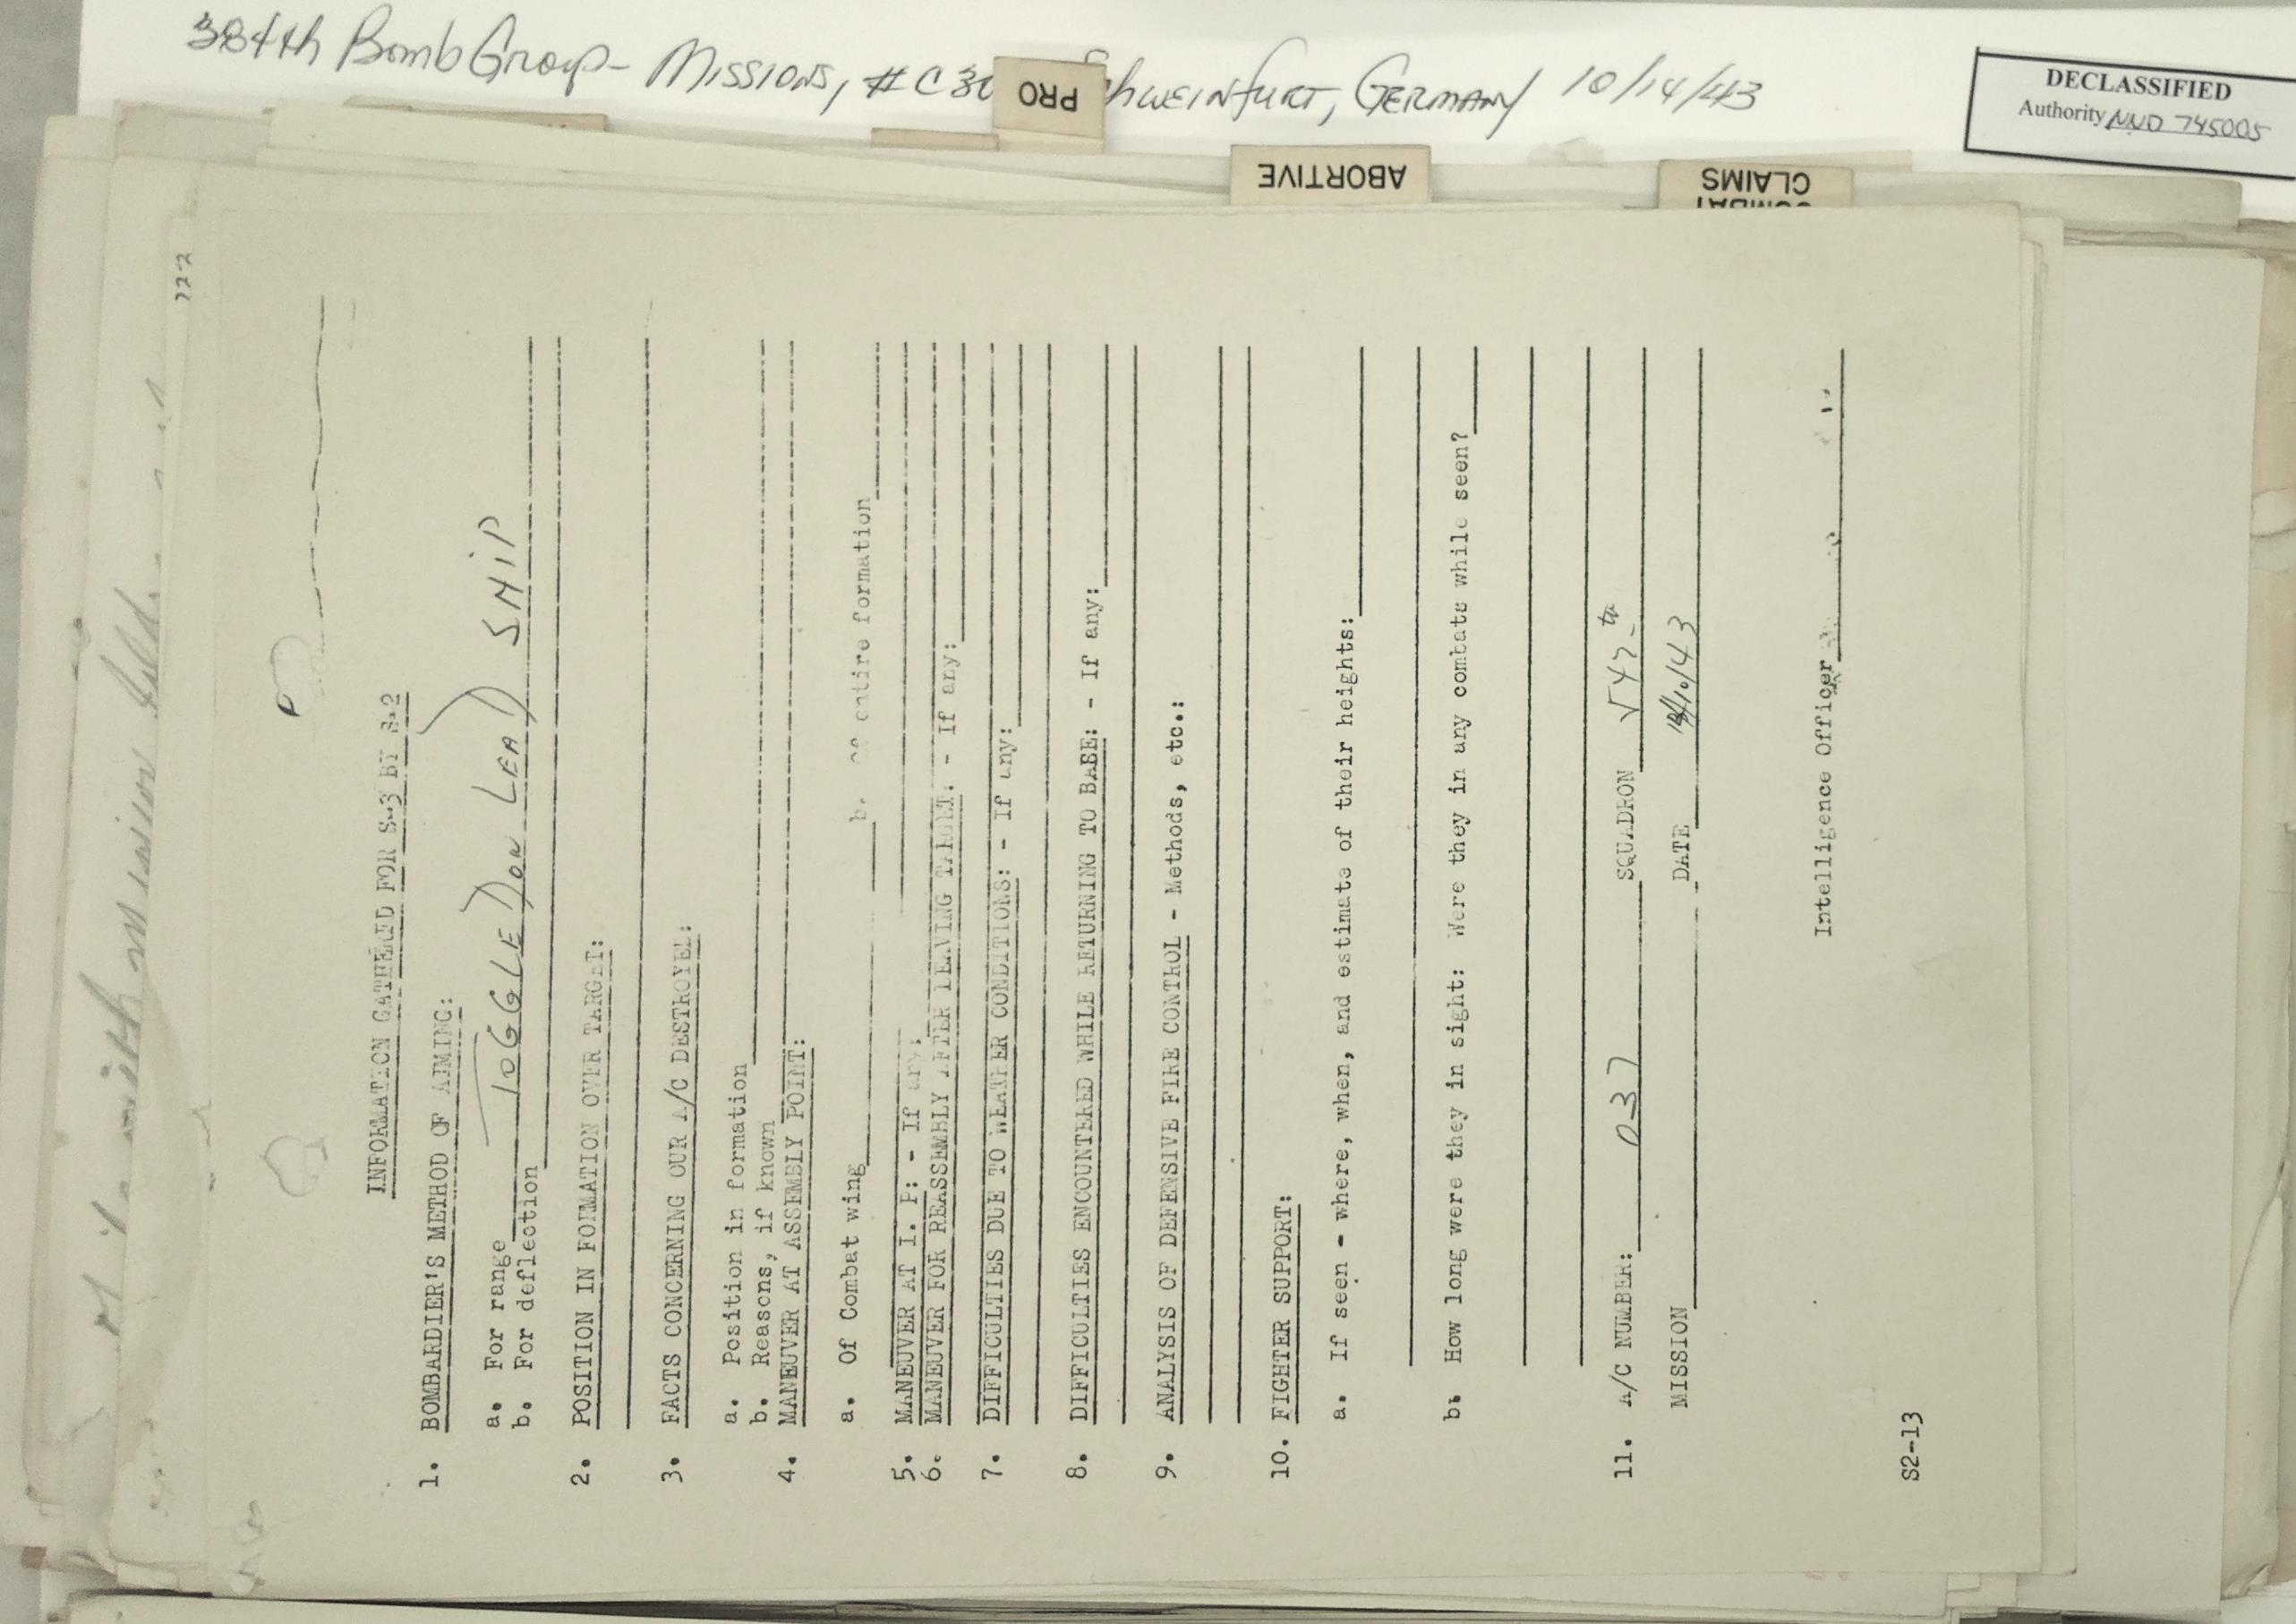 384th Bomb Group - Missions, #C30 Schweinfurt, Germany 10/14/43
DECLASSIFIED
Authority NND 745005
PRO
ABORTIVE
COMBAT
CLAIMS
722
INFORMATION GATHERED FOR S-3 BY S-2
1. BOMBARDIER'S METHOD OF AIMING:
a. For range TOGGLED ON LEAD SHIP
b. For deflection
2. POSITION IN FORMATION OVER TARGET:
3. FACTS CONCERNING OUR A/C DESTROYED:
a. Position in formation
b. Reasons, if known
4. MANEUVER AT ASSEMBLY POINT:
a. Of Combat wing b. Of entire formation
5. MANEUVER AT I. P: - If any:
6. MANEUVER FOR REASSEMBLY AFTER LEAVING TARGET: - If any:
7. DIFFICULTIES DUE TO WEATHER CONDITIONS: - If any:
8. DIFFICULTIES ENCOUNTERED WHILE RETURNING TO BASE: - If any:
9. ANALYSIS OF DEFENSIVE FIRE CONTROL - Methods, etc.:
10. FIGHTER SUPPORT:
a. If seen - where, when, and estimate of their heights:
b. How long were they in sight: Were they in any combats while seen?
11. A/C NUMBER: 037 SQUADRON 547th
MISSION DATE 14/10/43
Intelligence Officer
S2-13